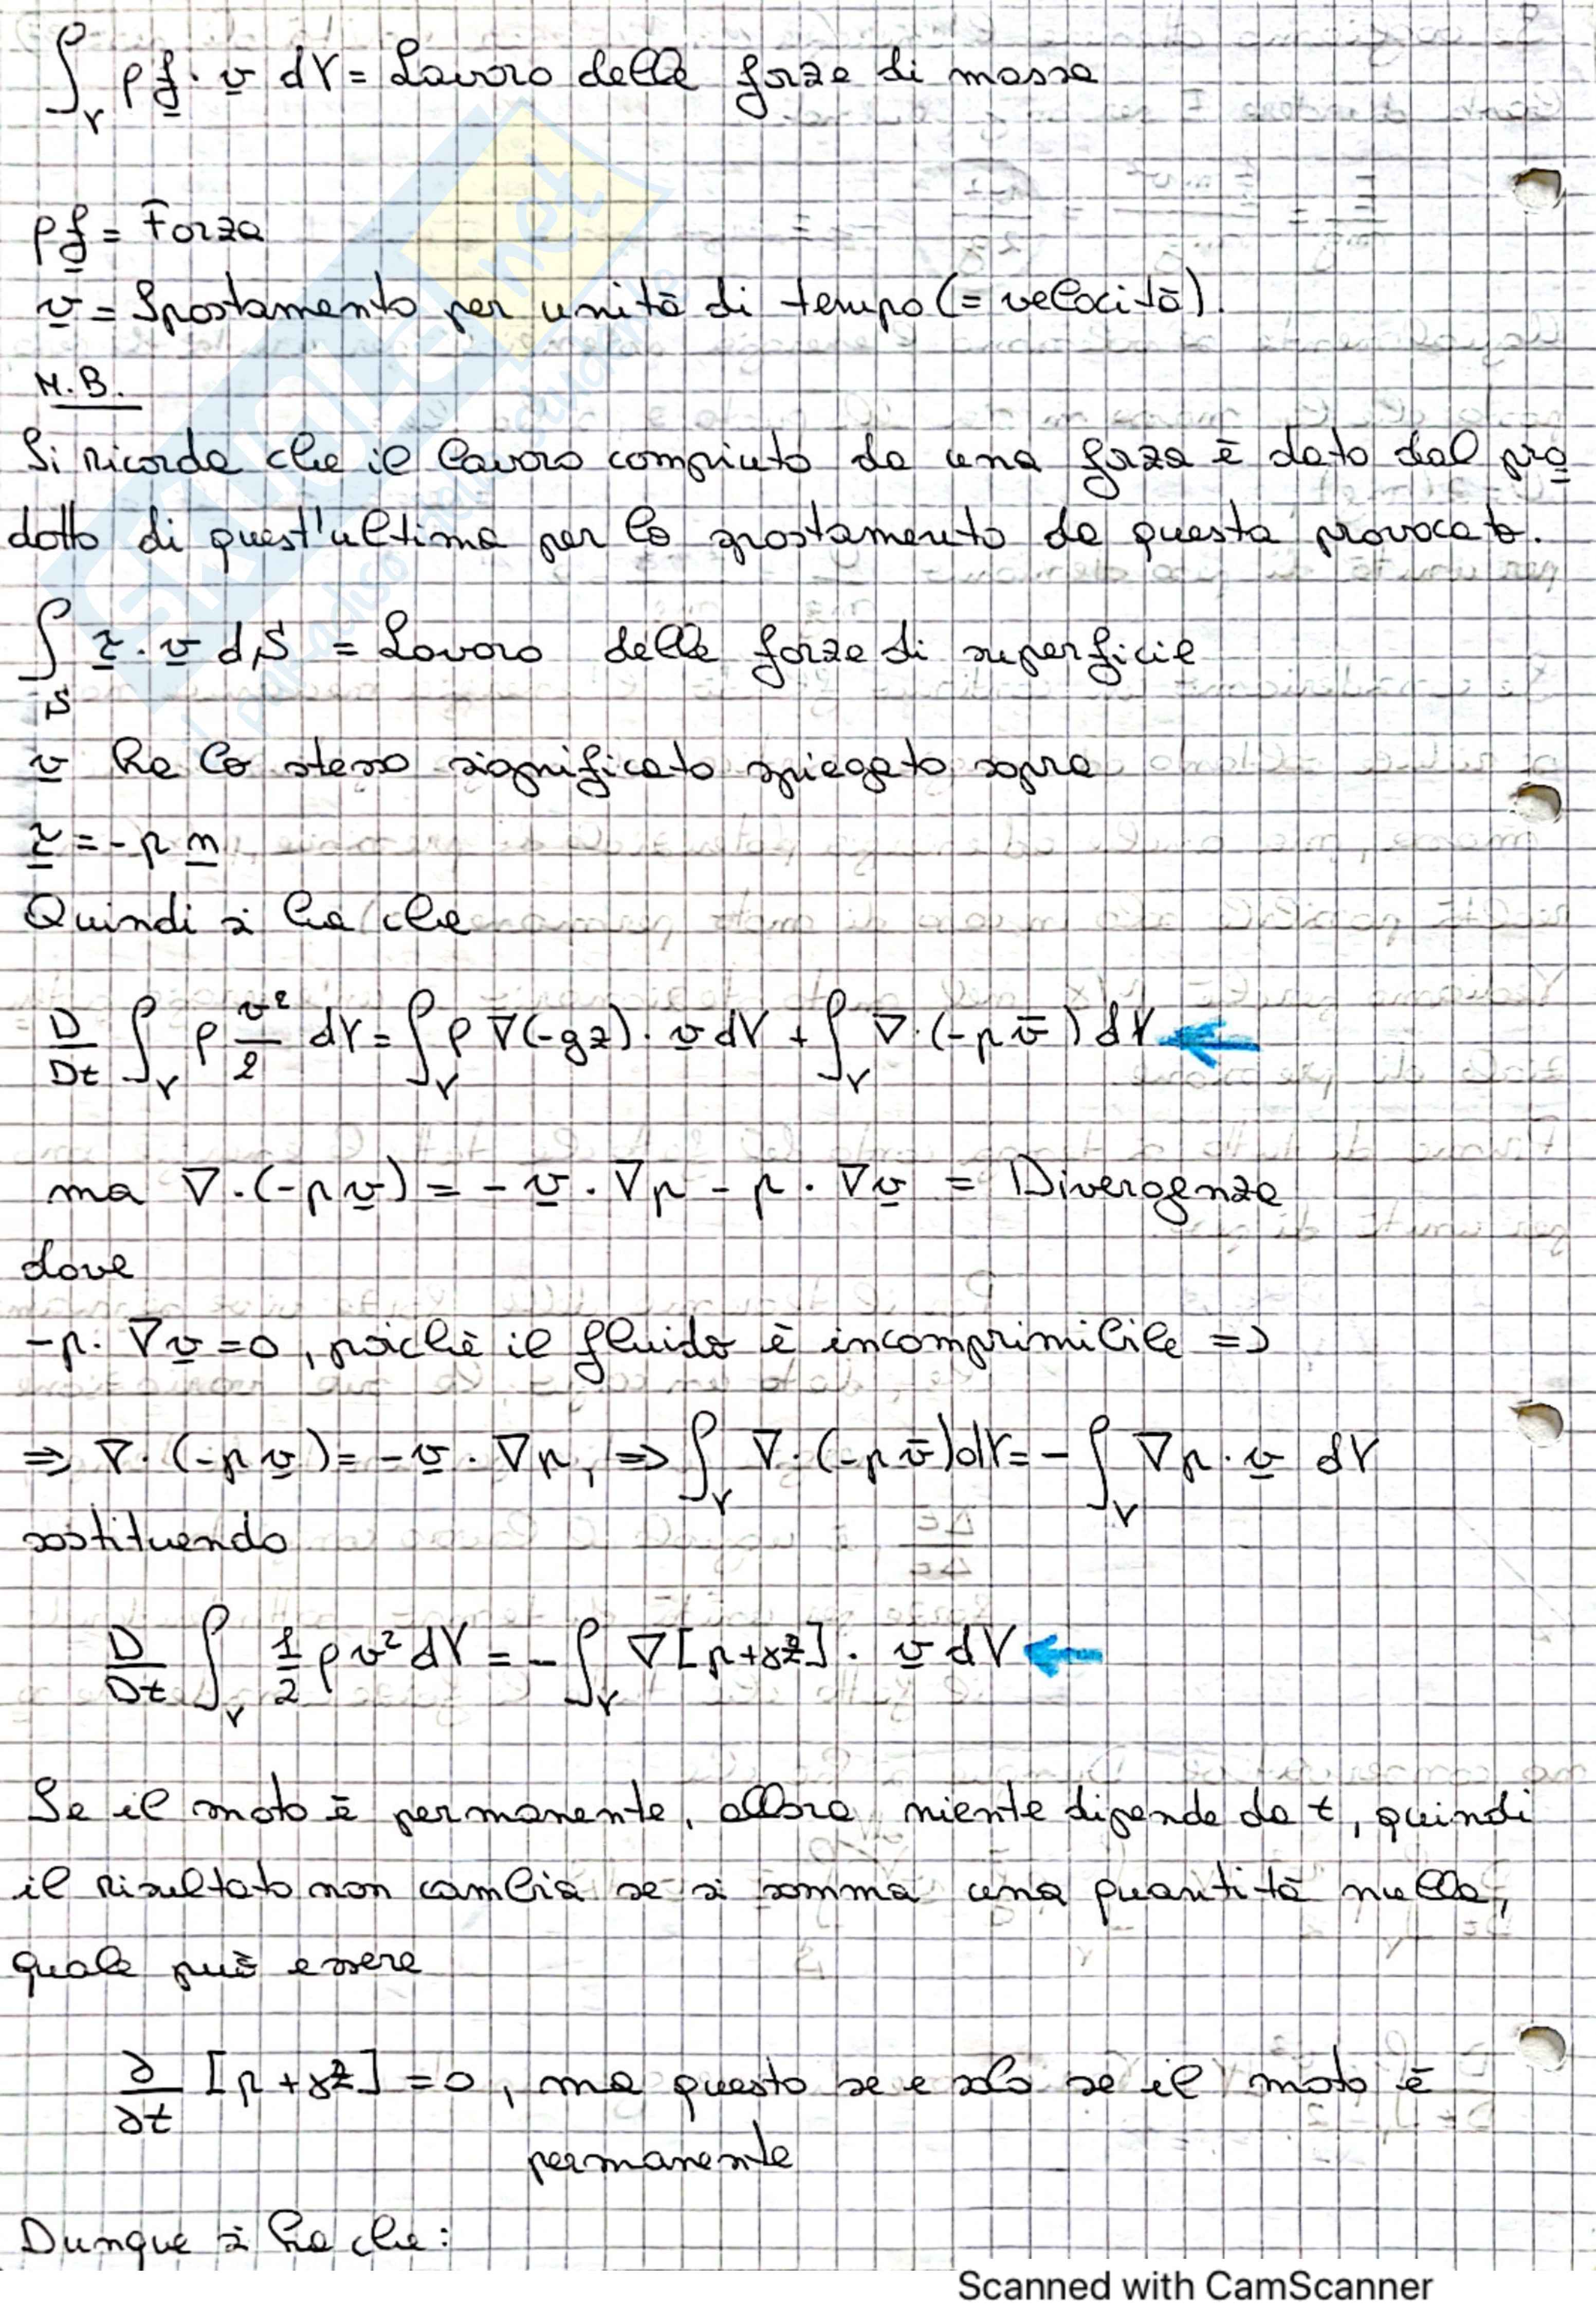 ∫_V ρ f · v dV = Lavoro delle forze di massa
ρ f = Forza
v = Spostamento per unità di tempo (= velocità).
N.B.
Si ricorda che il lavoro compiuto da una forza è dato dal pro
dotto di quest'ultima per lo spostamento da questa provocato.
∫_S τ · v dS = Lavoro delle forze di superficie
v ha lo stesso significato spiegato sopra
τ = - p n
Quindi si ha che
D/Dt ∫_V ρ v²/2 dV = ∫_V ρ ∇(-gz) · v dV + ∫_V ∇ · (-p v̄) dV
ma ∇ · (-p v) = - v · ∇p - p · ∇v = Divergenza
dove
-p · ∇v = 0, poichè il fluido è incomprimibile =>
=> ∇ · (-p v) = - v · ∇p, => ∫_V ∇ · (-p v̄) dV = - ∫_V ∇p · v dV
sostituendo
D/Dt ∫_V 1/2 ρ v² dV = - ∫_V ∇[p+γz] · v dV
Se il moto è permanente, allora niente dipende da t, quindi
il risultato non cambia se si somma una quantità nulla,
quale può essere
∂/∂t [p + γz] = 0, ma questo se e solo se il moto è
permanente
Dunque si ha che:
Scanned with CamScanner